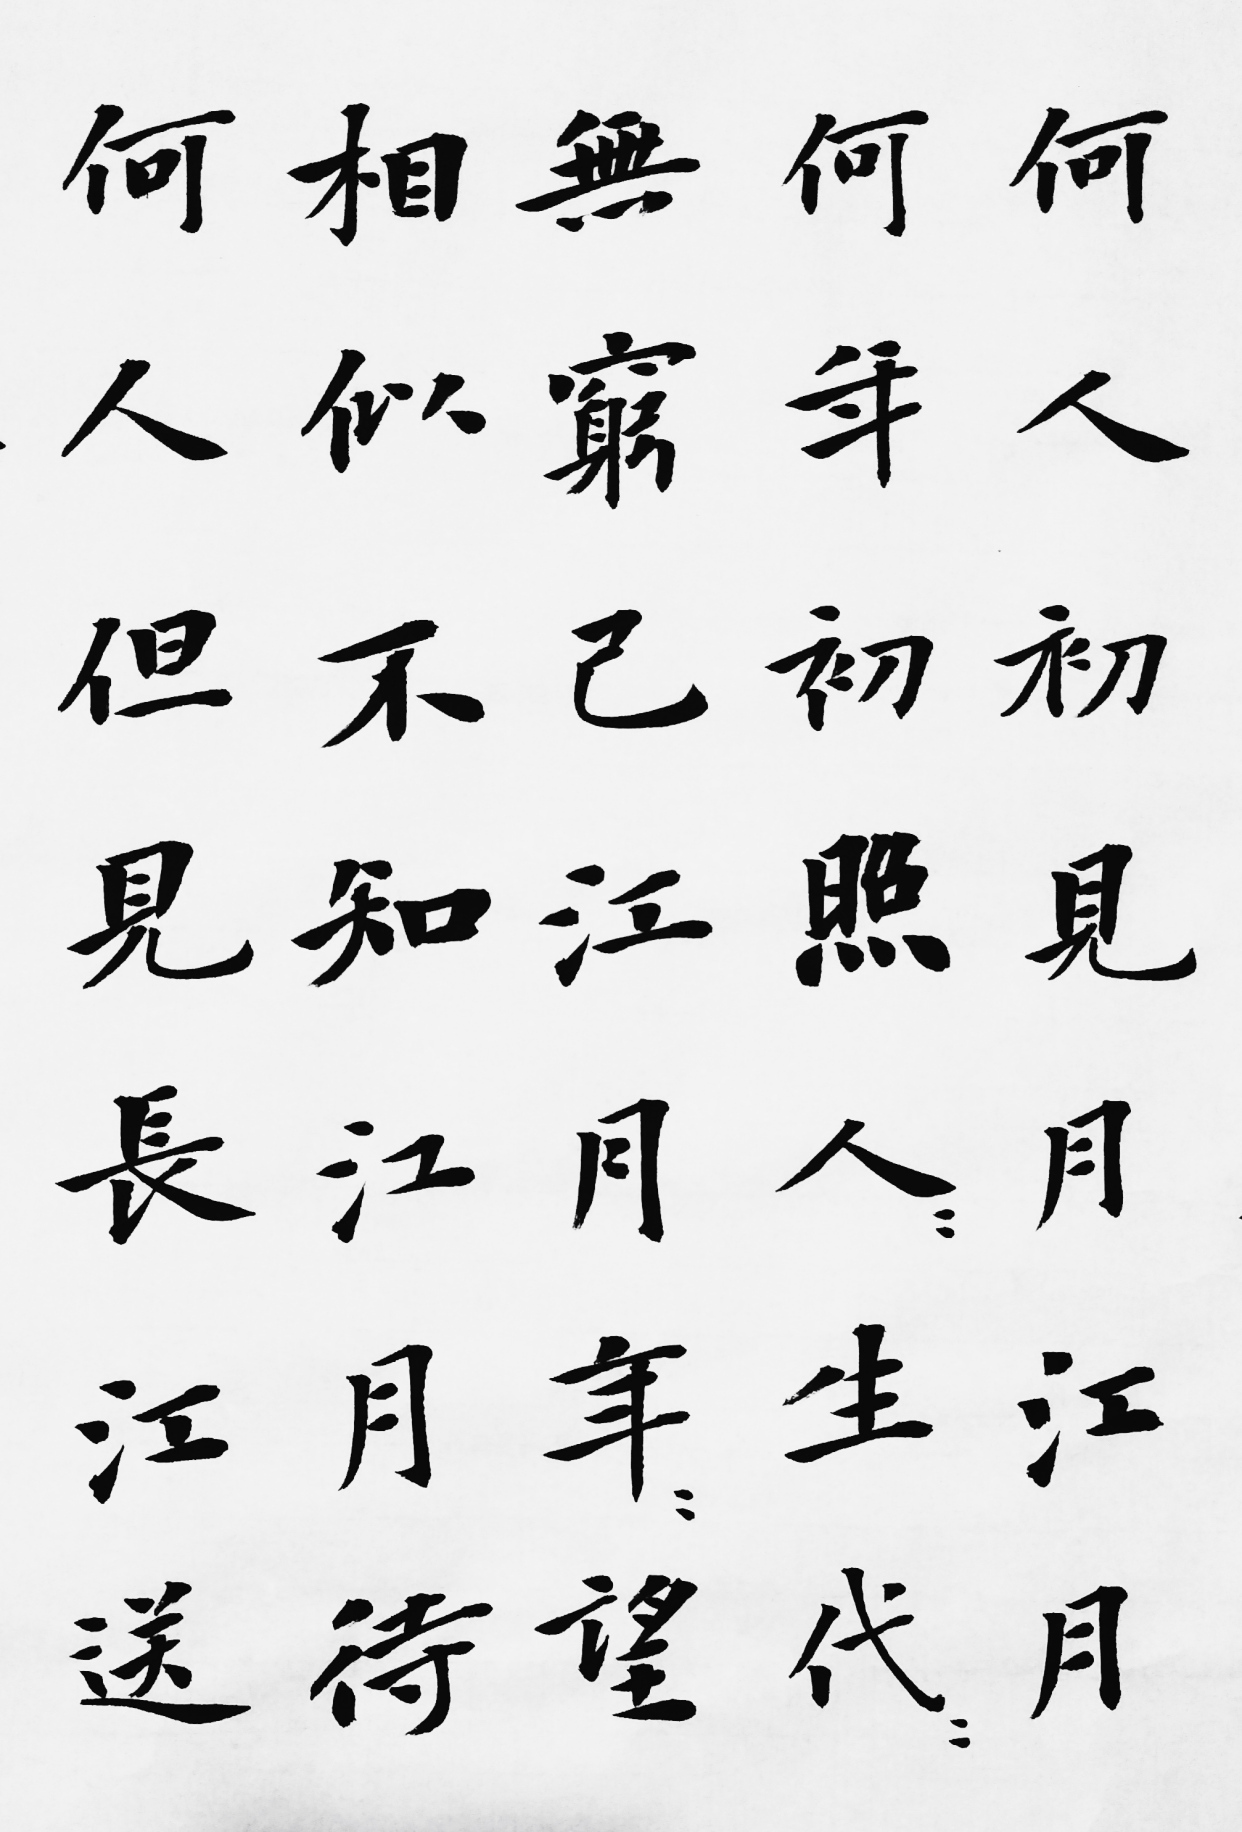 何人初見月江月
何年初照人〻生代〻
無窮已江月年〻望
相似不知江月待
何人但見長江送